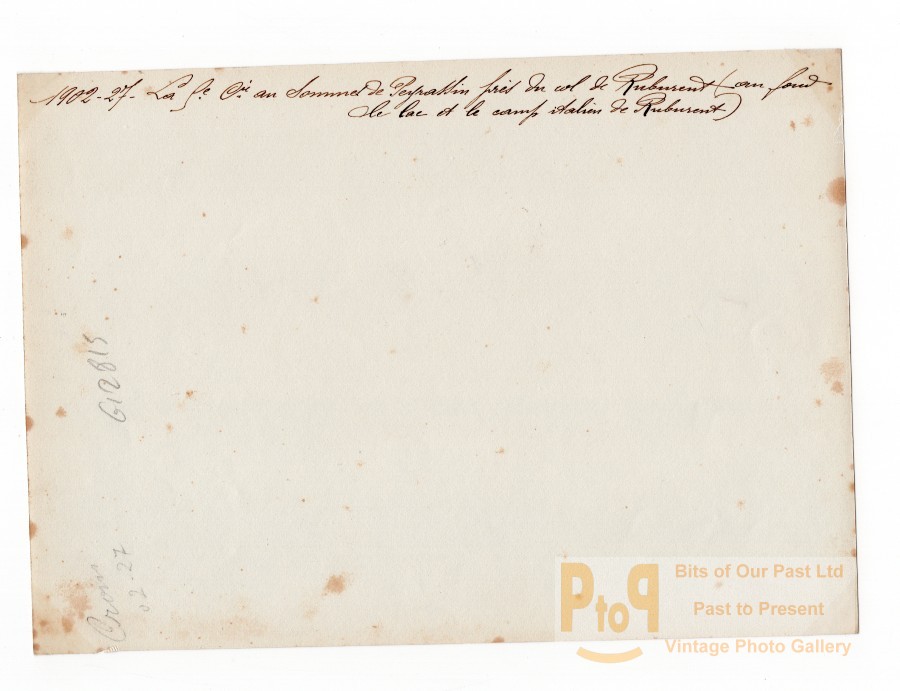 1902-27- La 5e Cie au Sommet de Peyrassin près du col de Ruburent (au fond
le lac et le camp italien de Ruburent)
612815
02.27
PtoP
Bits of Our Past Ltd
Past to Present
Vintage Photo Gallery